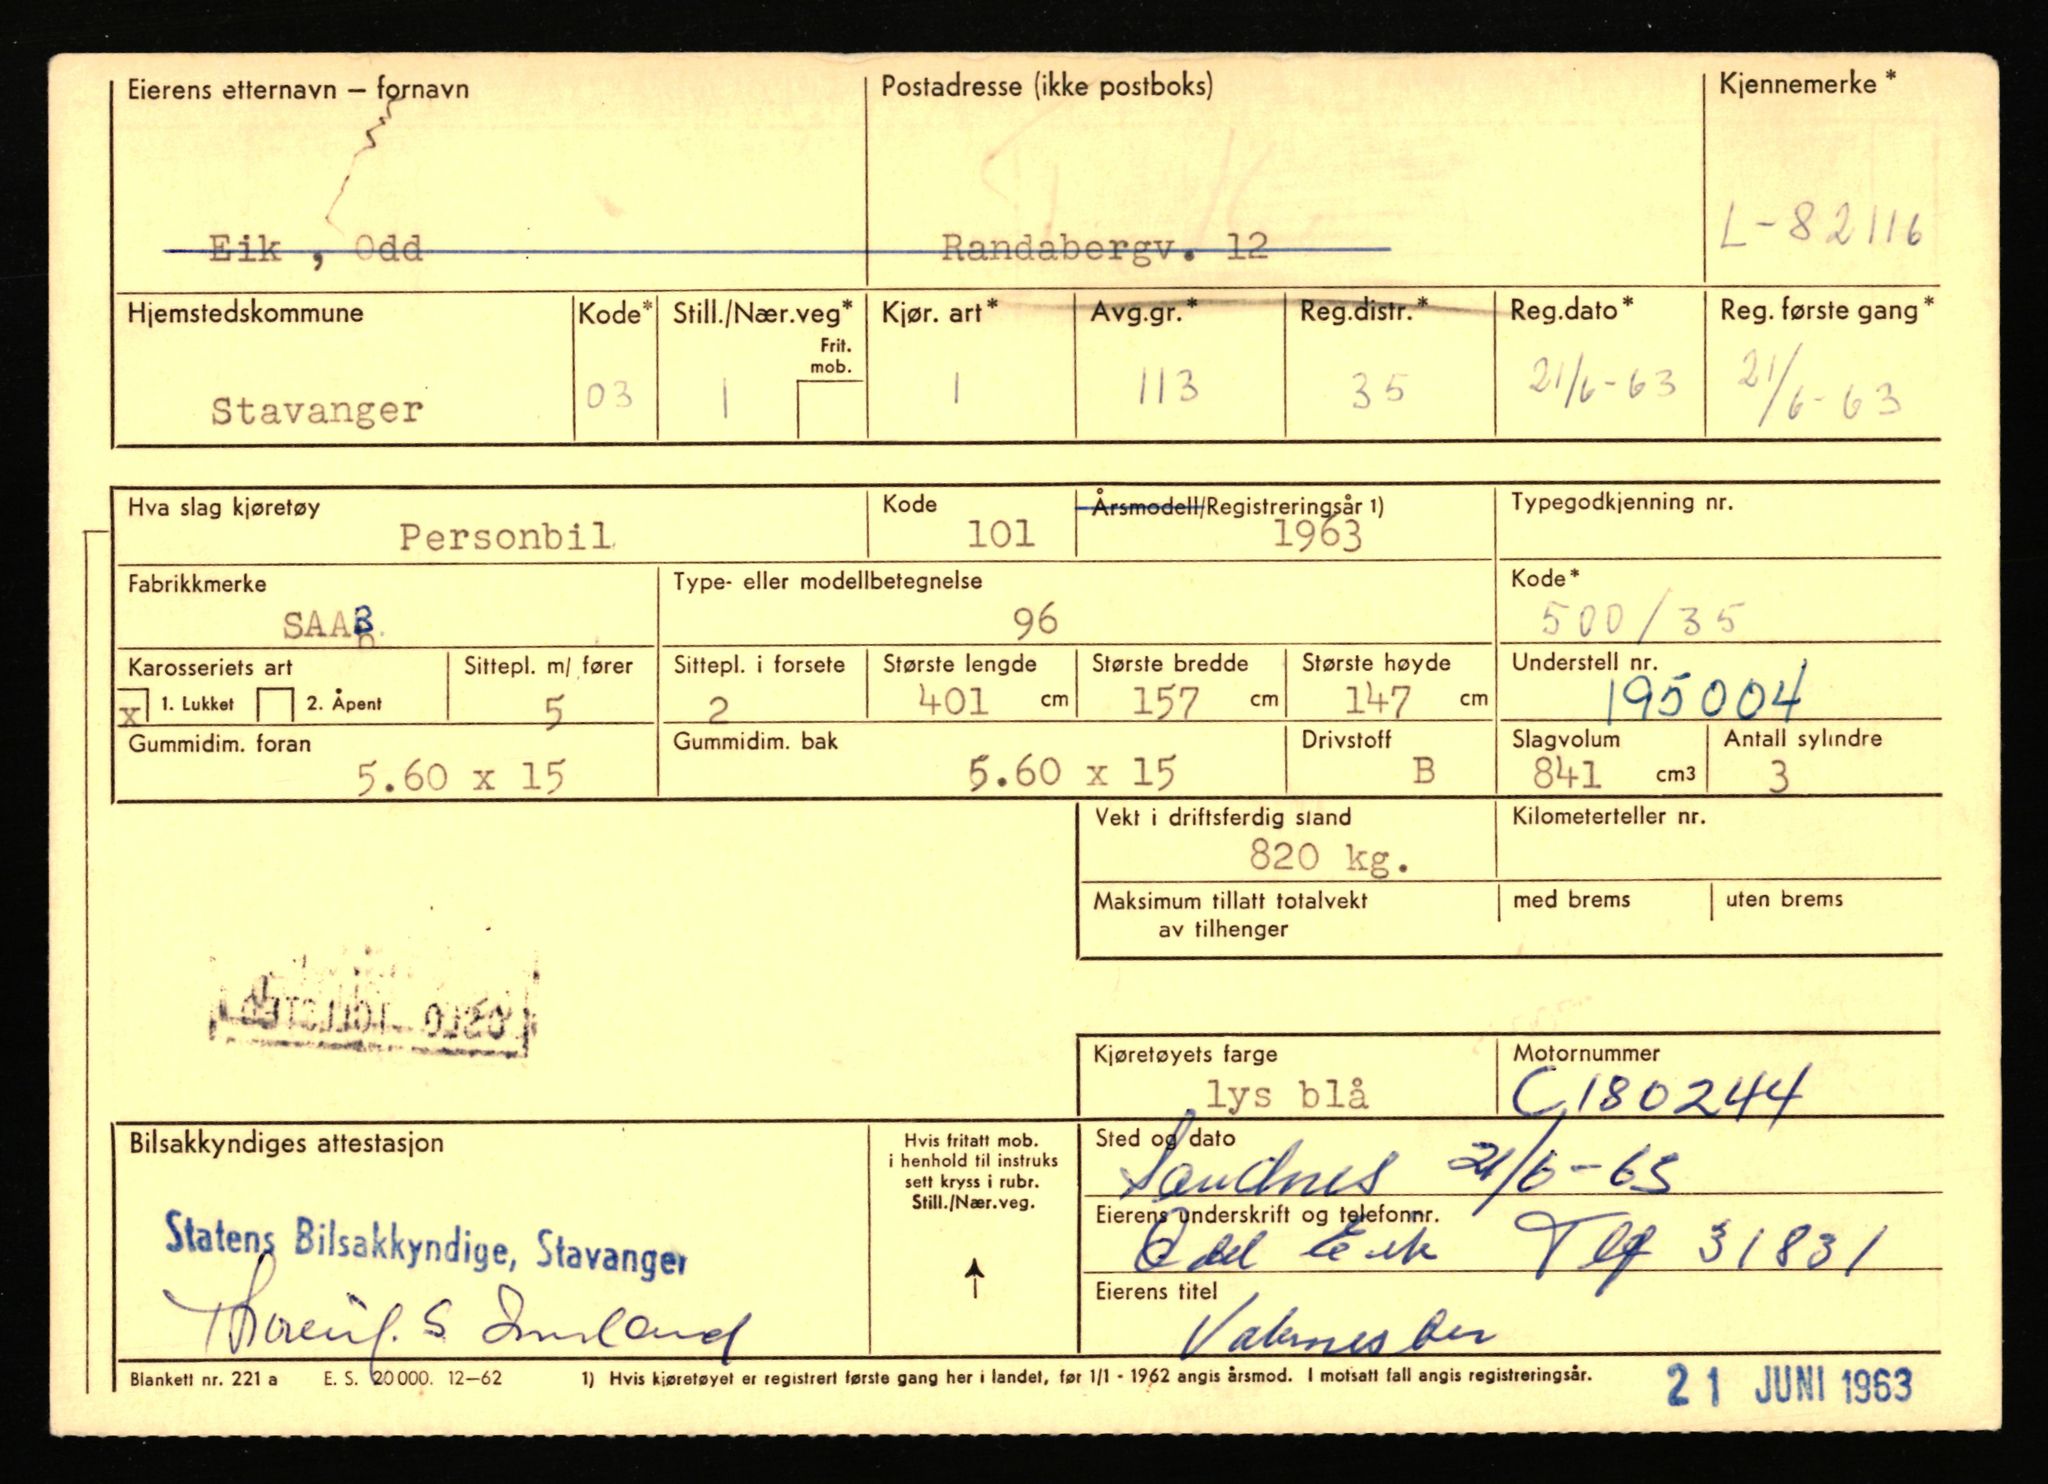 Eierens etternavn — fornavn Postadresse (ikke postboks) Kjennemerke*
Eik , Odd Randabergv. 12 L-82116
Hjemstedskommune Kode* Still./Nær.veg* Kjør. art* Avg.gr.* Reg.distr.* Reg.dato* Reg. første gang*
Frit. mob.
Stavanger 03 1 1 113 35 21/6-63 21/6-63
Hva slag kjøretøy Kode Årsmodell/Registreringsår 1) Typegodkjenning nr.
Personbil 101 1963
Fabrikkmerke Type- eller modellbetegnelse Kode*
SAAB 96 500/35
Karosseriets art Sittepl. m/ fører Sittepl. i forsete Største lengde Største bredde Største høyde Understell nr.
x 1. Lukket 2. Åpent 5 2 401 cm 157 cm 147 cm 195004
Gummidim. foran Gummidim. bak Drivstoff Slagvolum Antall sylindre
5.60 x 15 5.60 x 15 B 841 cm3 3
Vekt i driftsferdig stand Kilometerteller nr.
820 kg.
Maksimum tillatt totalvekt med brems uten brems
av tilhenger
OSLO TOLLSTED
Kjøretøyets farge Motornummer
lys blå C180244
Bilsakkyndiges attestasjon Sted og dato
Hvis fritatt mob.
i henhold til instruks
sett kryss i rubr.
Still./Nær.veg.
Sandnes 21/6-63
Eierens underskrift og telefonnr.
Statens Bilsakkyndige, Stavanger
Odd Eik Tlf 31831
Eierens titel
S.
Blankett nr. 221 a E. S. 20 000. 12—62 1) Hvis kjøretøyet er registrert første gang her i landet, før 1/1 - 1962 angis årsmod. I motsatt fall angis registreringsår.
21 JUNI 1963